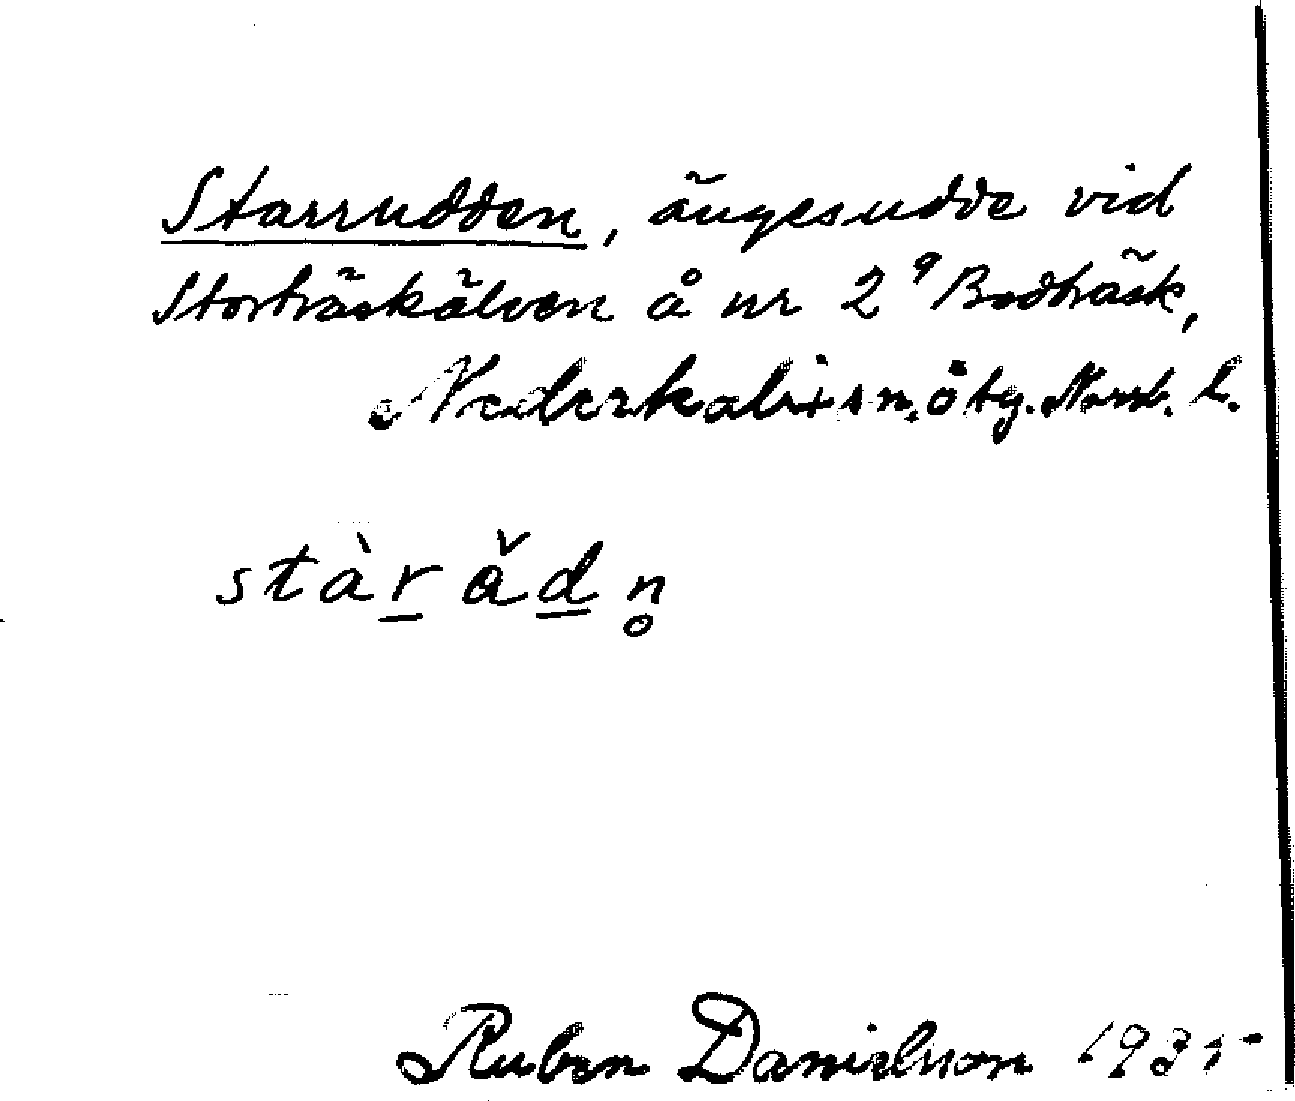 Starrudden, ängesudde vid
Storträskälven å nr 2 Bodträsk,
Nederkalix sn, ö tg. Norrb. l.
stàr ǎd n̥
Ruben Danielsson 1935